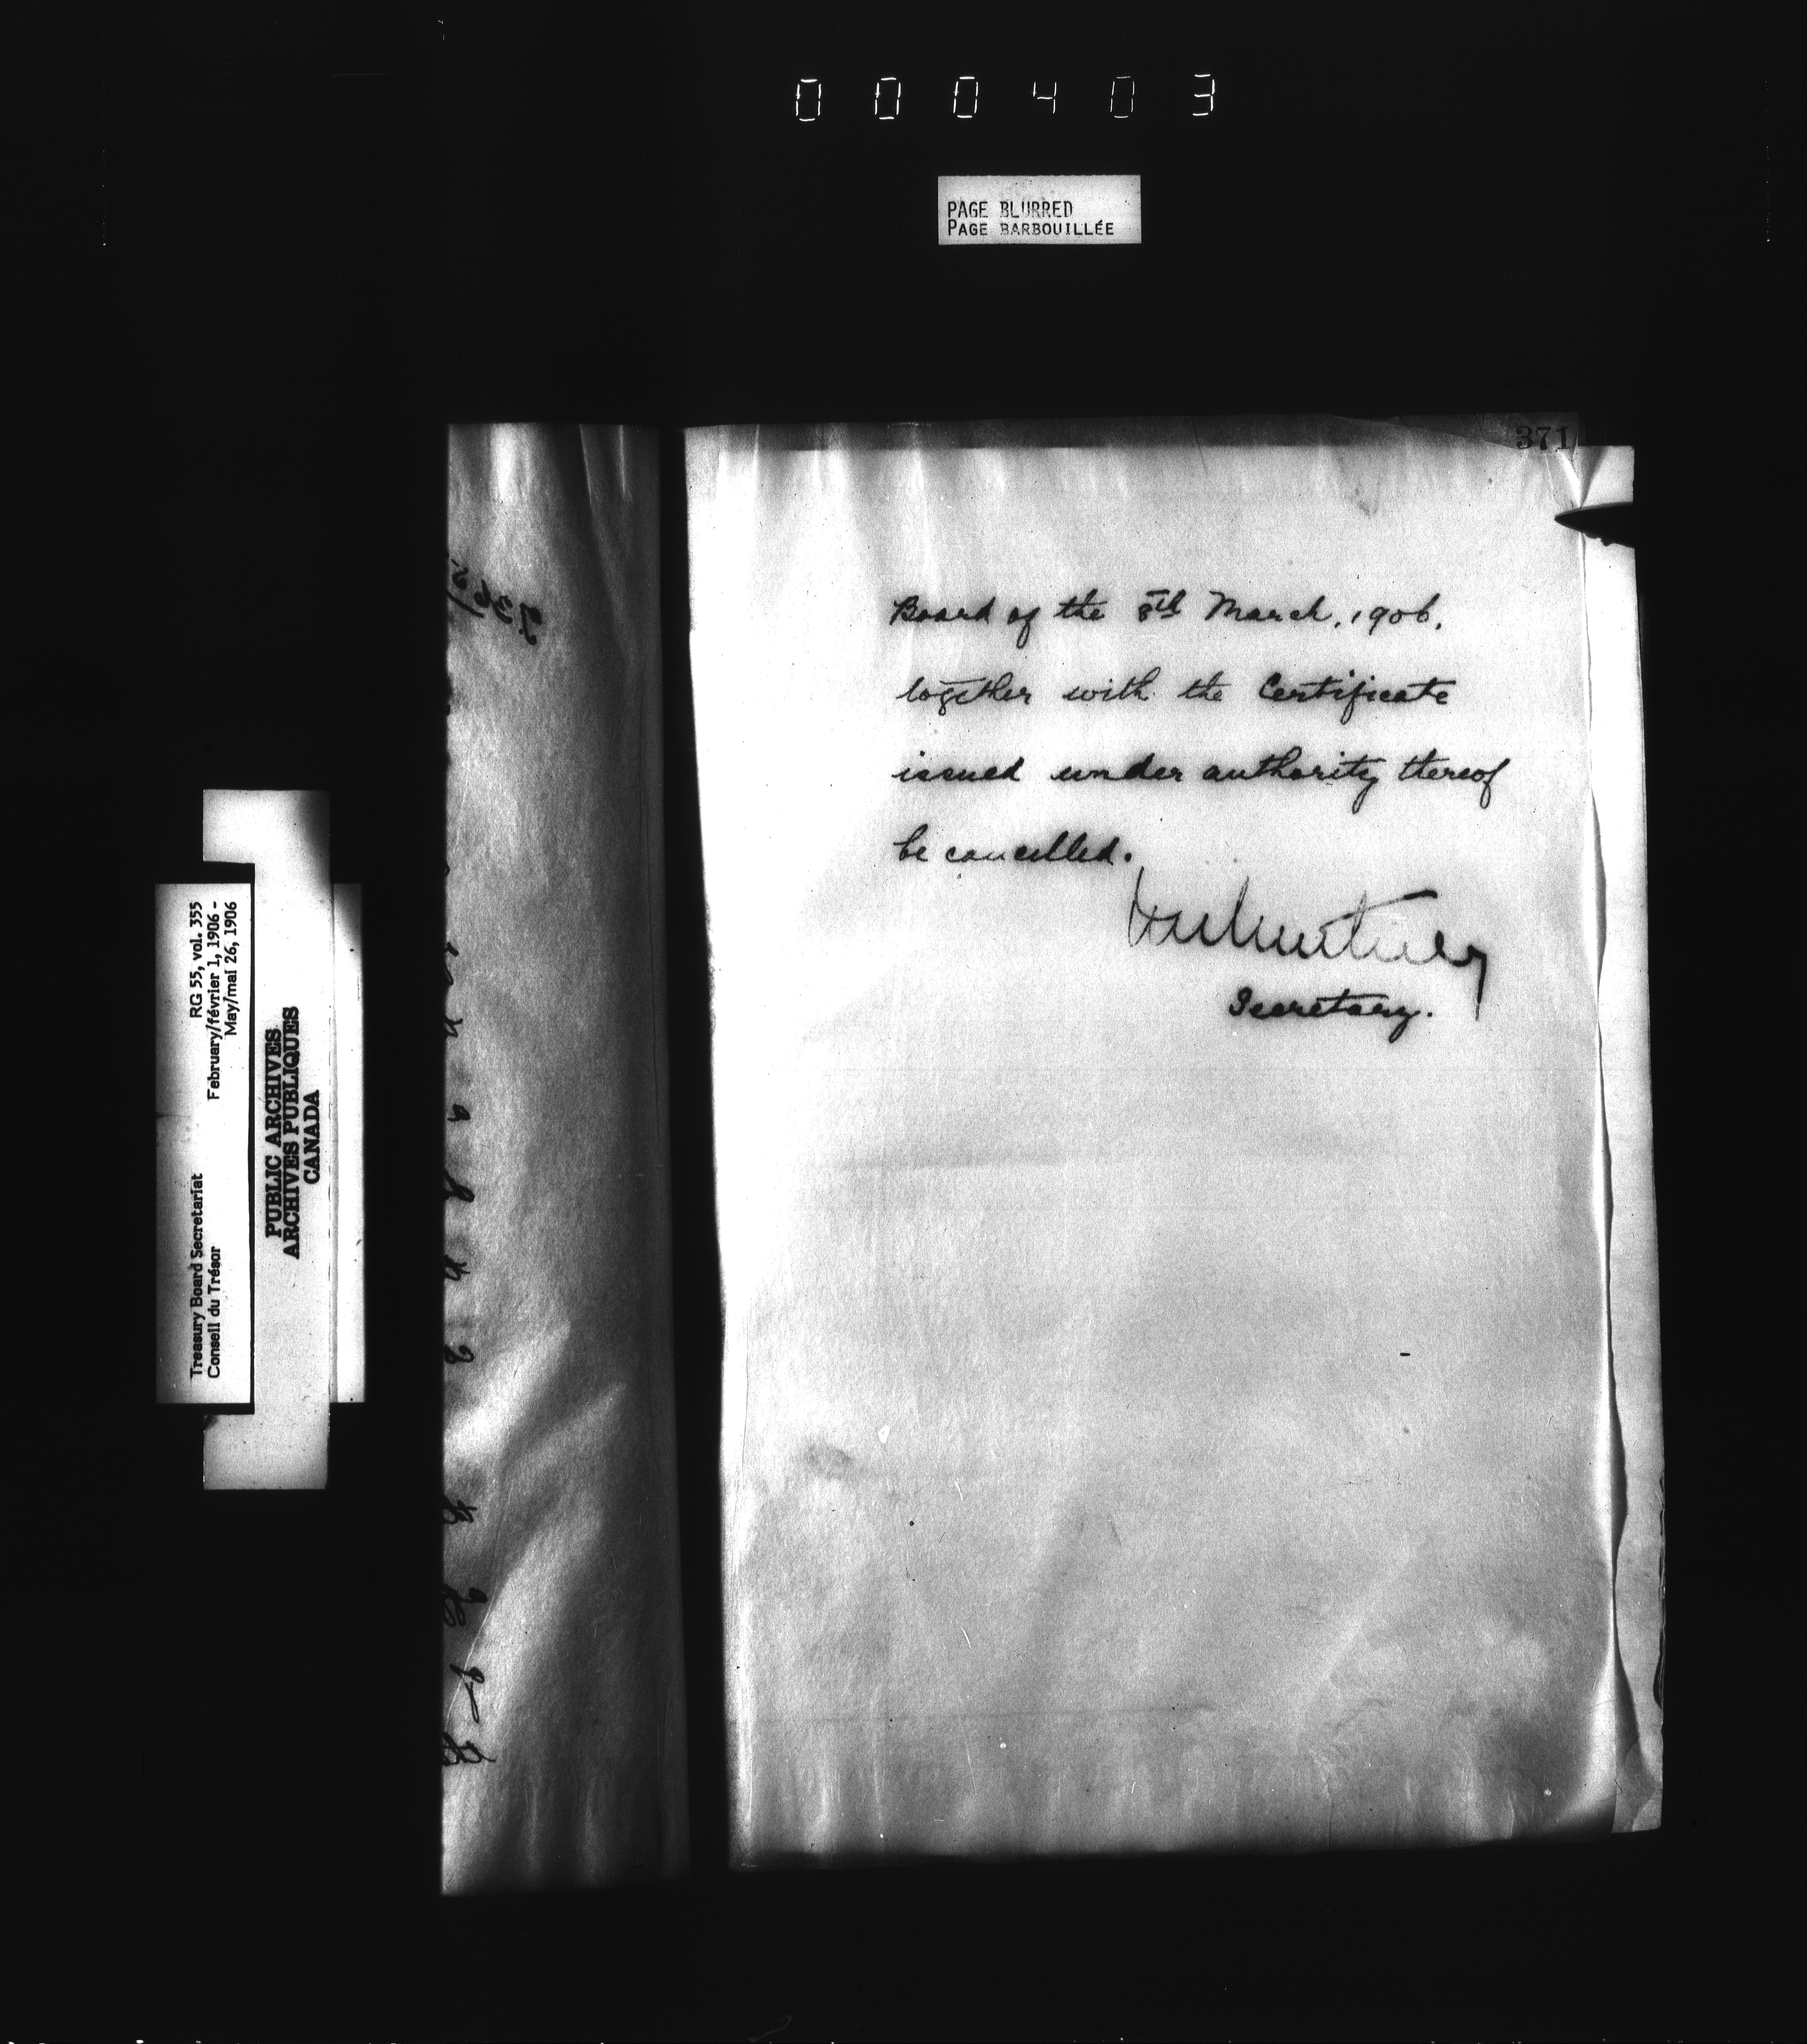 000403
PAGE BLURRED
PAGE BARBOUILLÉE
371
Board of the 8th March, 1906,
together with the Certificate
issued under authority thereof
be cancelled.
Secretary.
Treasury Board Secretariat RG 55, vol. 355
Conseil du Trésor February/février 1, 1906 -
May/mai 26, 1906
PUBLIC ARCHIVES
ARCHIVES PUBLIQUES
CANADA